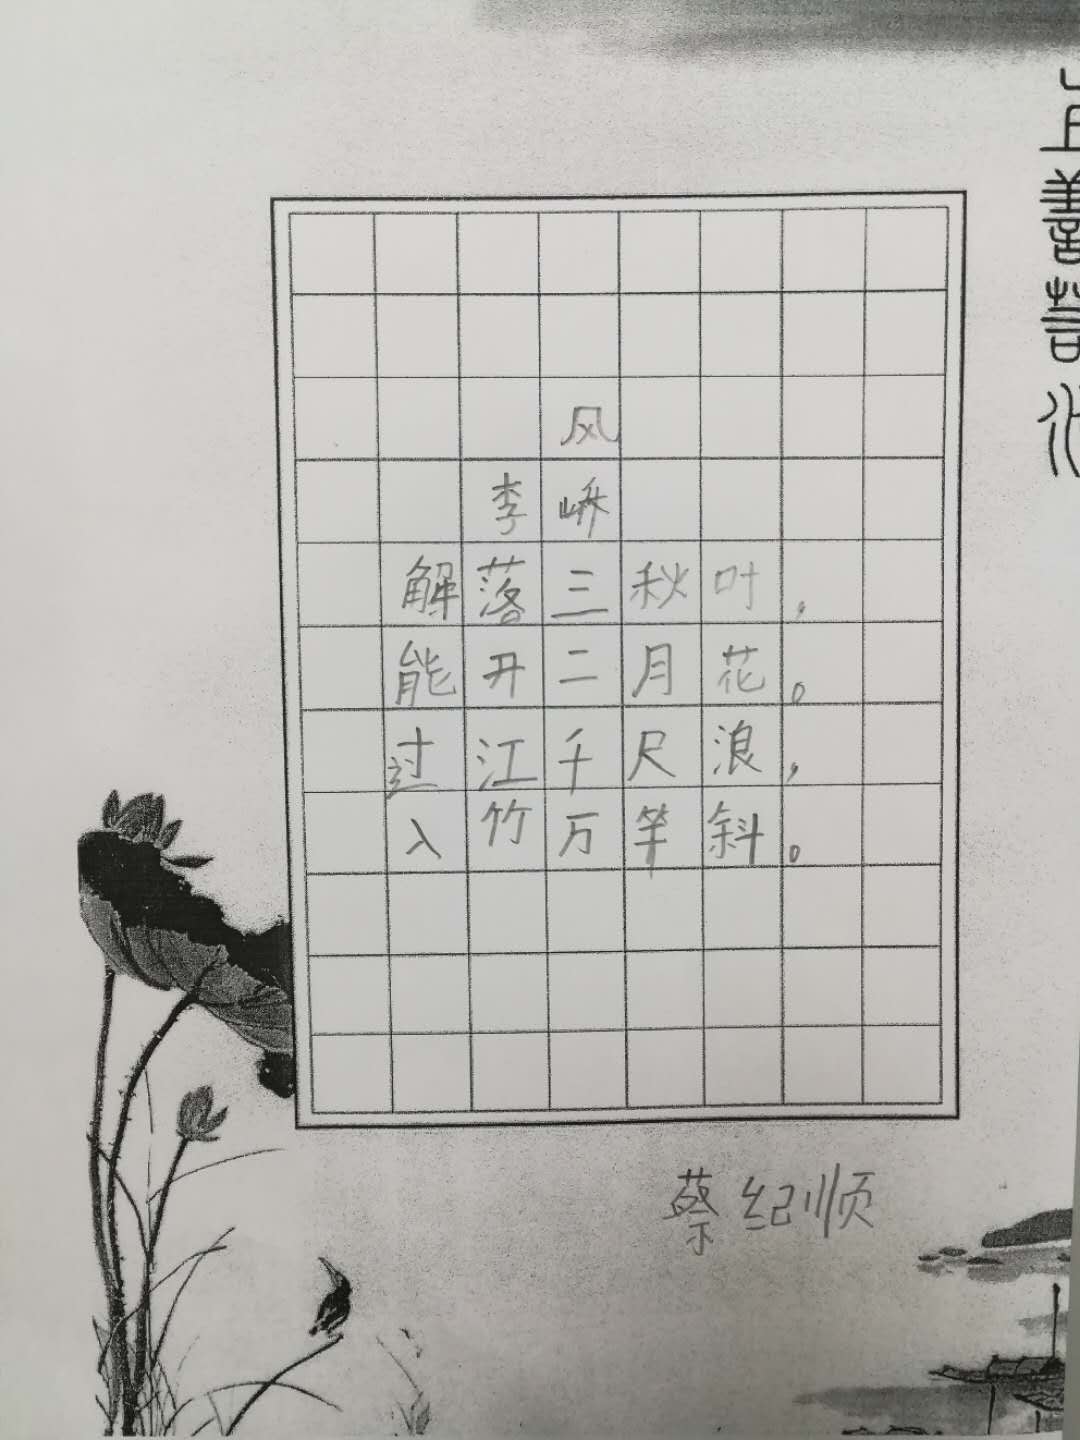 风
李峤
解落三秋叶，
能开二月花。
过江千尺浪，
入竹万竿斜。
蔡纪顺